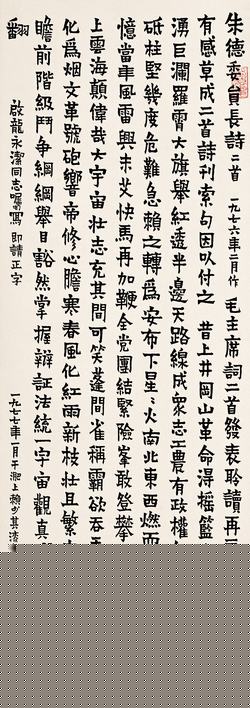 朱德委員長詩二首 一九七六年二月作 毛主席詞二首發表聆讀再三
有感草成二首詩刊索句因以付之 昔上井岡山革命得搖籃
湧巨瀾羅霄大旗舉紅透半邊天路線成眾志工農有政權
砥柱堅幾度危難急賴之轉為安布下星星火南北東西燃而
憶當年風雷興未艾快馬再加鞭全黨團結緊險峯敢登攀
上雲海顛偉哉大宇宙壯志充其間可笑蓬間雀稱霸欲吞
化為烟文革號砲響帝修心膽寒春風化紅雨新枝壯且繁
瞻前階級鬥爭綱綱舉目豁然掌握辯証法統一宇宙觀真
翻 啟龍永潔同志囑寫即請正字
一九七七年一月于淝上賴少其漆